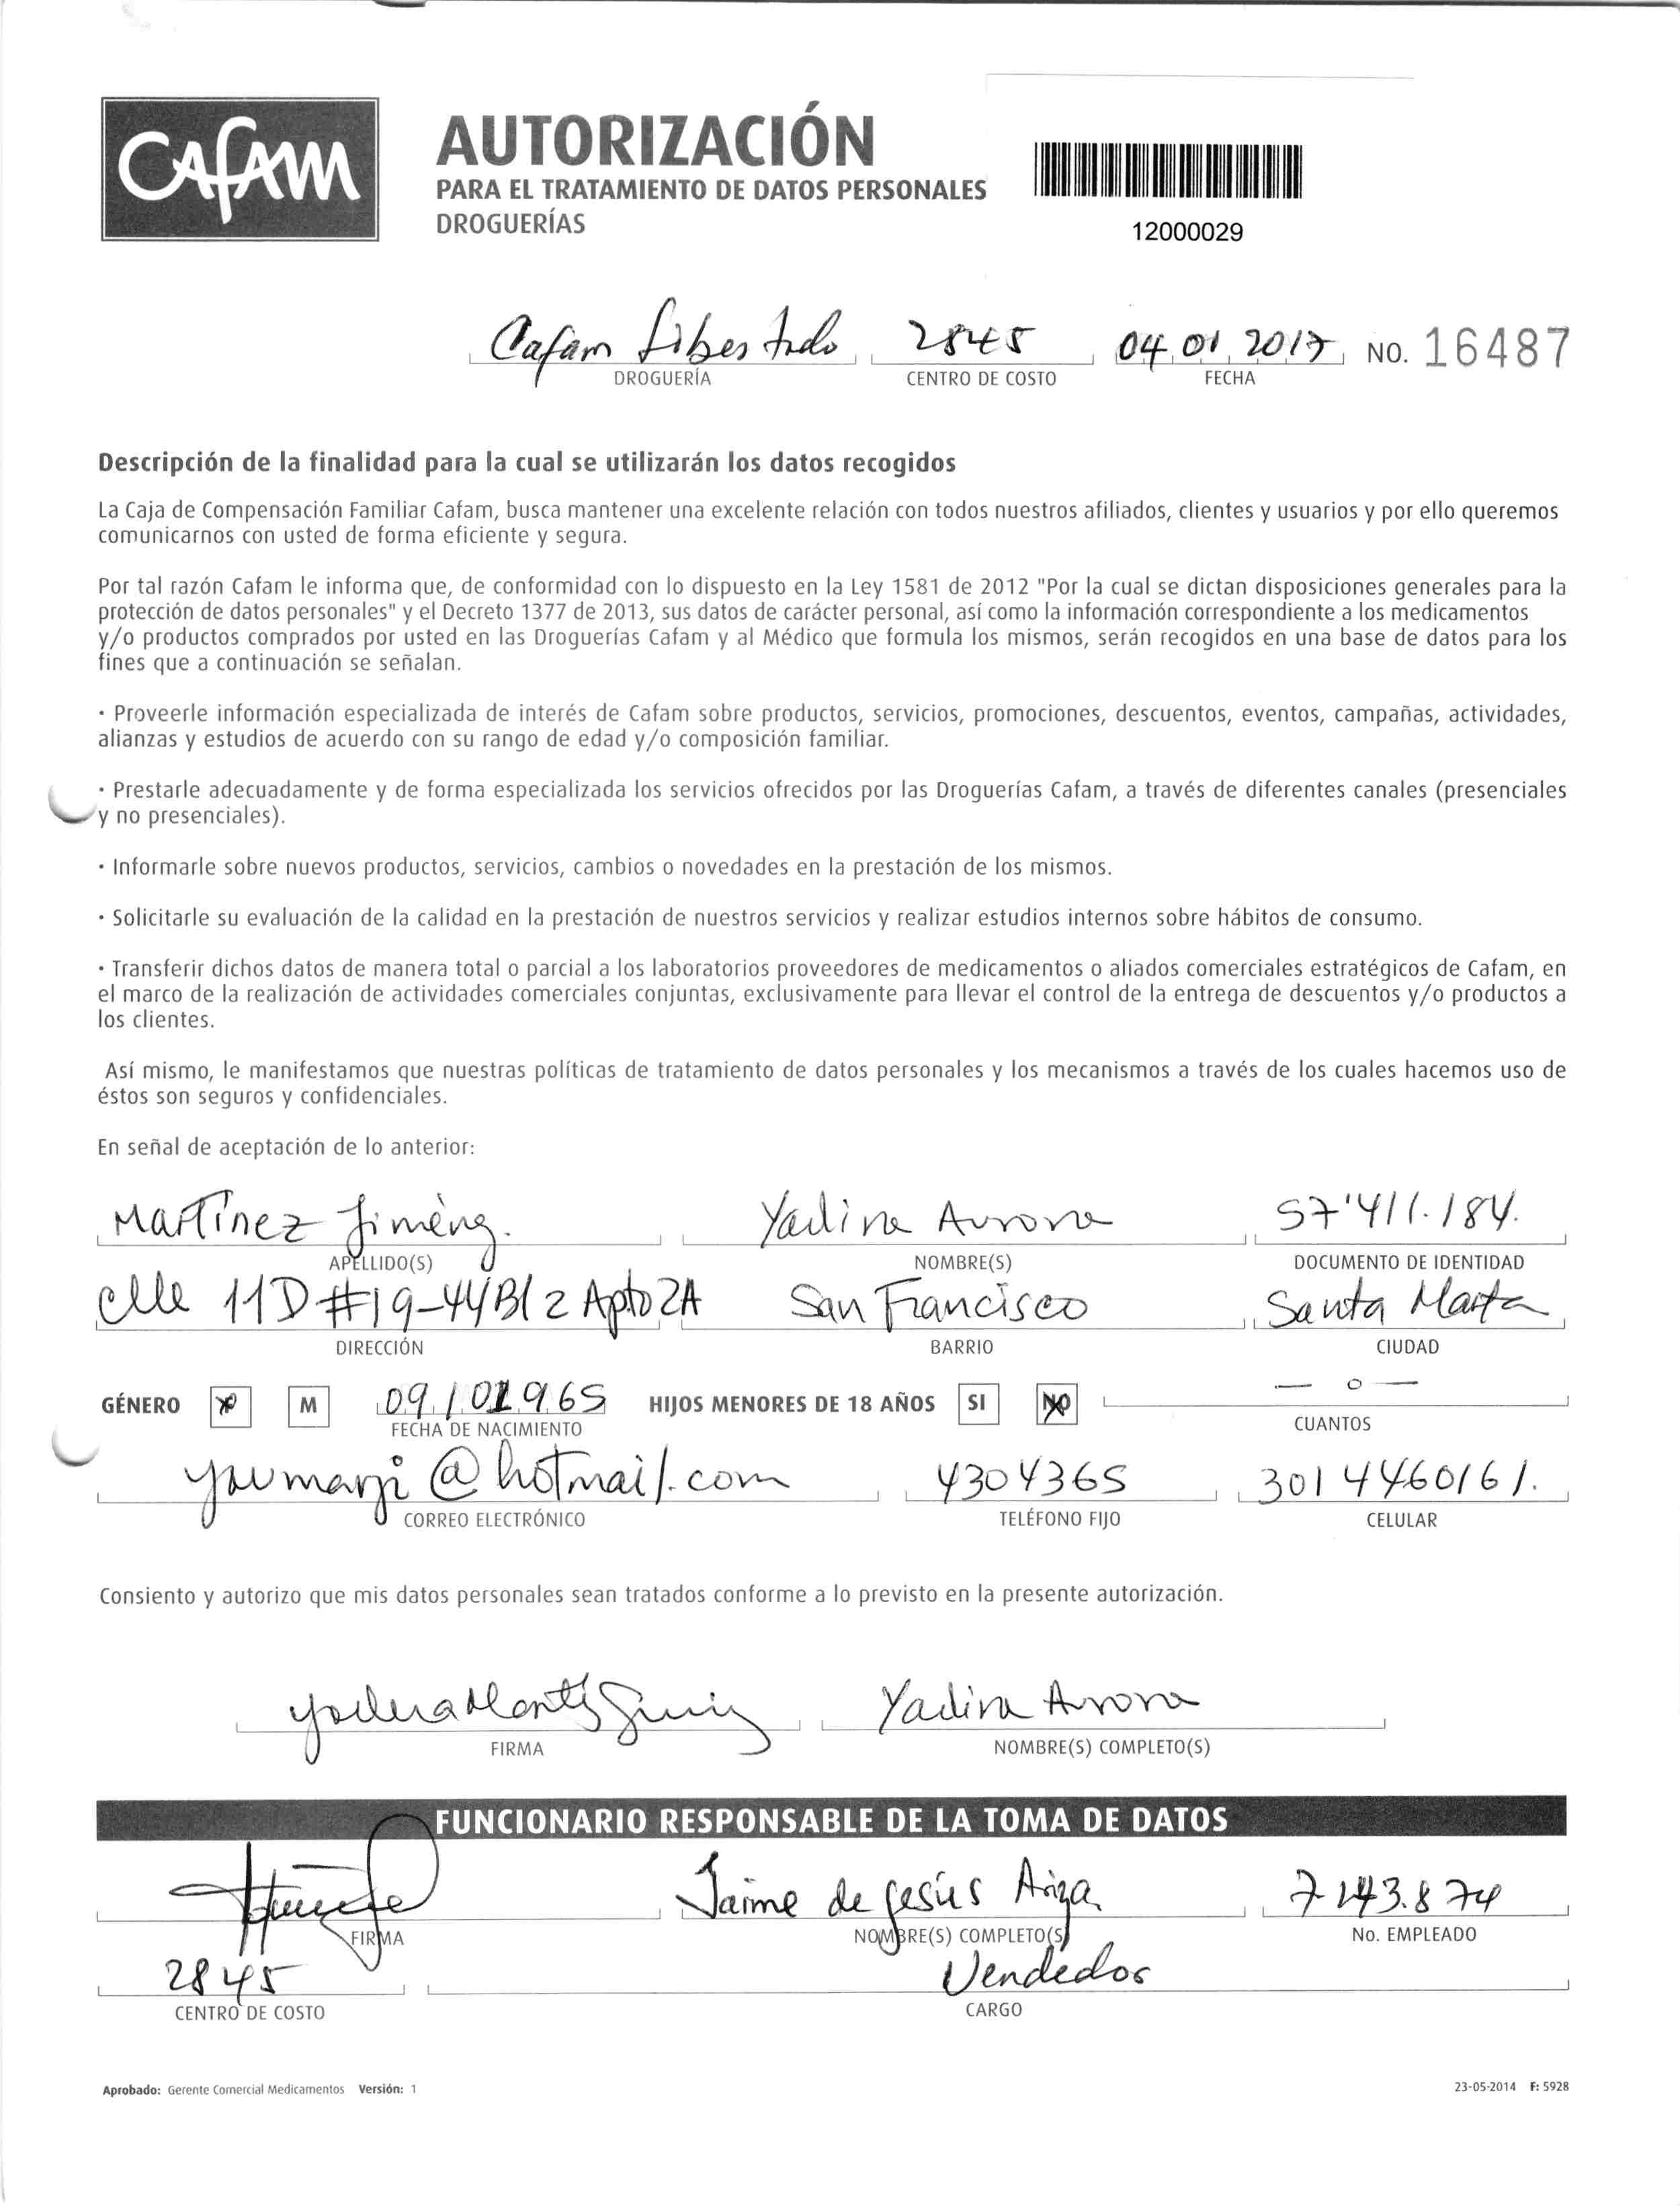 CAFAM
AUTORIZACIÓN
PARA EL TRATAMIENTO DE DATOS PERSONALES
DROGUERÍAS
12000029
Cafam Libertado 2845 04 01 2017 NO. 16487
DROGUERÍA CENTRO DE COSTO FECHA
Descripción de la finalidad para la cual se utilizarán los datos recogidos
La Caja de Compensación Familiar Cafam, busca mantener una excelente relación con todos nuestros afiliados, clientes y usuarios y por ello queremos
comunicarnos con usted de forma eficiente y segura.
Por tal razón Cafam le informa que, de conformidad con lo dispuesto en la Ley 1581 de 2012 "Por la cual se dictan disposiciones generales para la
protección de datos personales" y el Decreto 1377 de 2013, sus datos de carácter personal, así como la información correspondiente a los medicamentos
y/o productos comprados por usted en las Droguerías Cafam y al Médico que formula los mismos, serán recogidos en una base de datos para los
fines que a continuación se señalan.
· Proveerle información especializada de interés de Cafam sobre productos, servicios, promociones, descuentos, eventos, campañas, actividades,
alianzas y estudios de acuerdo con su rango de edad y/o composición familiar.
· Prestarle adecuadamente y de forma especializada los servicios ofrecidos por las Droguerías Cafam, a través de diferentes canales (presenciales
y no presenciales).
· Informarle sobre nuevos productos, servicios, cambios o novedades en la prestación de los mismos.
· Solicitarle su evaluación de la calidad en la prestación de nuestros servicios y realizar estudios internos sobre hábitos de consumo.
· Transferir dichos datos de manera total o parcial a los laboratorios proveedores de medicamentos o aliados comerciales estratégicos de Cafam, en
el marco de la realización de actividades comerciales conjuntas, exclusivamente para llevar el control de la entrega de descuentos y/o productos a
los clientes.
Así mismo, le manifestamos que nuestras políticas de tratamiento de datos personales y los mecanismos a través de los cuales hacemos uso de
éstos son seguros y confidenciales.
En señal de aceptación de lo anterior:
Martínez Jiménez. Yadira Aurora 57'411.184.
APELLIDO(S) NOMBRE(S) DOCUMENTO DE IDENTIDAD
clle 11D #19-44 Bl 2 Apto 2A San Francisco Santa Marta
DIRECCIÓN BARRIO CIUDAD
GÉNERO M 09/01965 HIJOS MENORES DE 18 AÑOS SI NO — 0 —
FECHA DE NACIMIENTO CUANTOS
yaumarji@hotmail.com 4304365 3014460161.
CORREO ELECTRÓNICO TELÉFONO FIJO CELULAR
Consiento y autorizo que mis datos personales sean tratados conforme a lo previsto en la presente autorización.
Yadira Aurora
FIRMA NOMBRE(S) COMPLETO(S)
FUNCIONARIO RESPONSABLE DE LA TOMA DE DATOS
Jaime de Jesús Ariza 7143.874
FIRMA NOMBRE(S) COMPLETO(S) No. EMPLEADO
2845 Vendedor
CENTRO DE COSTO CARGO
Aprobado: Gerente Comercial Medicamentos Versión: 1 23-05-2014 F: 5928